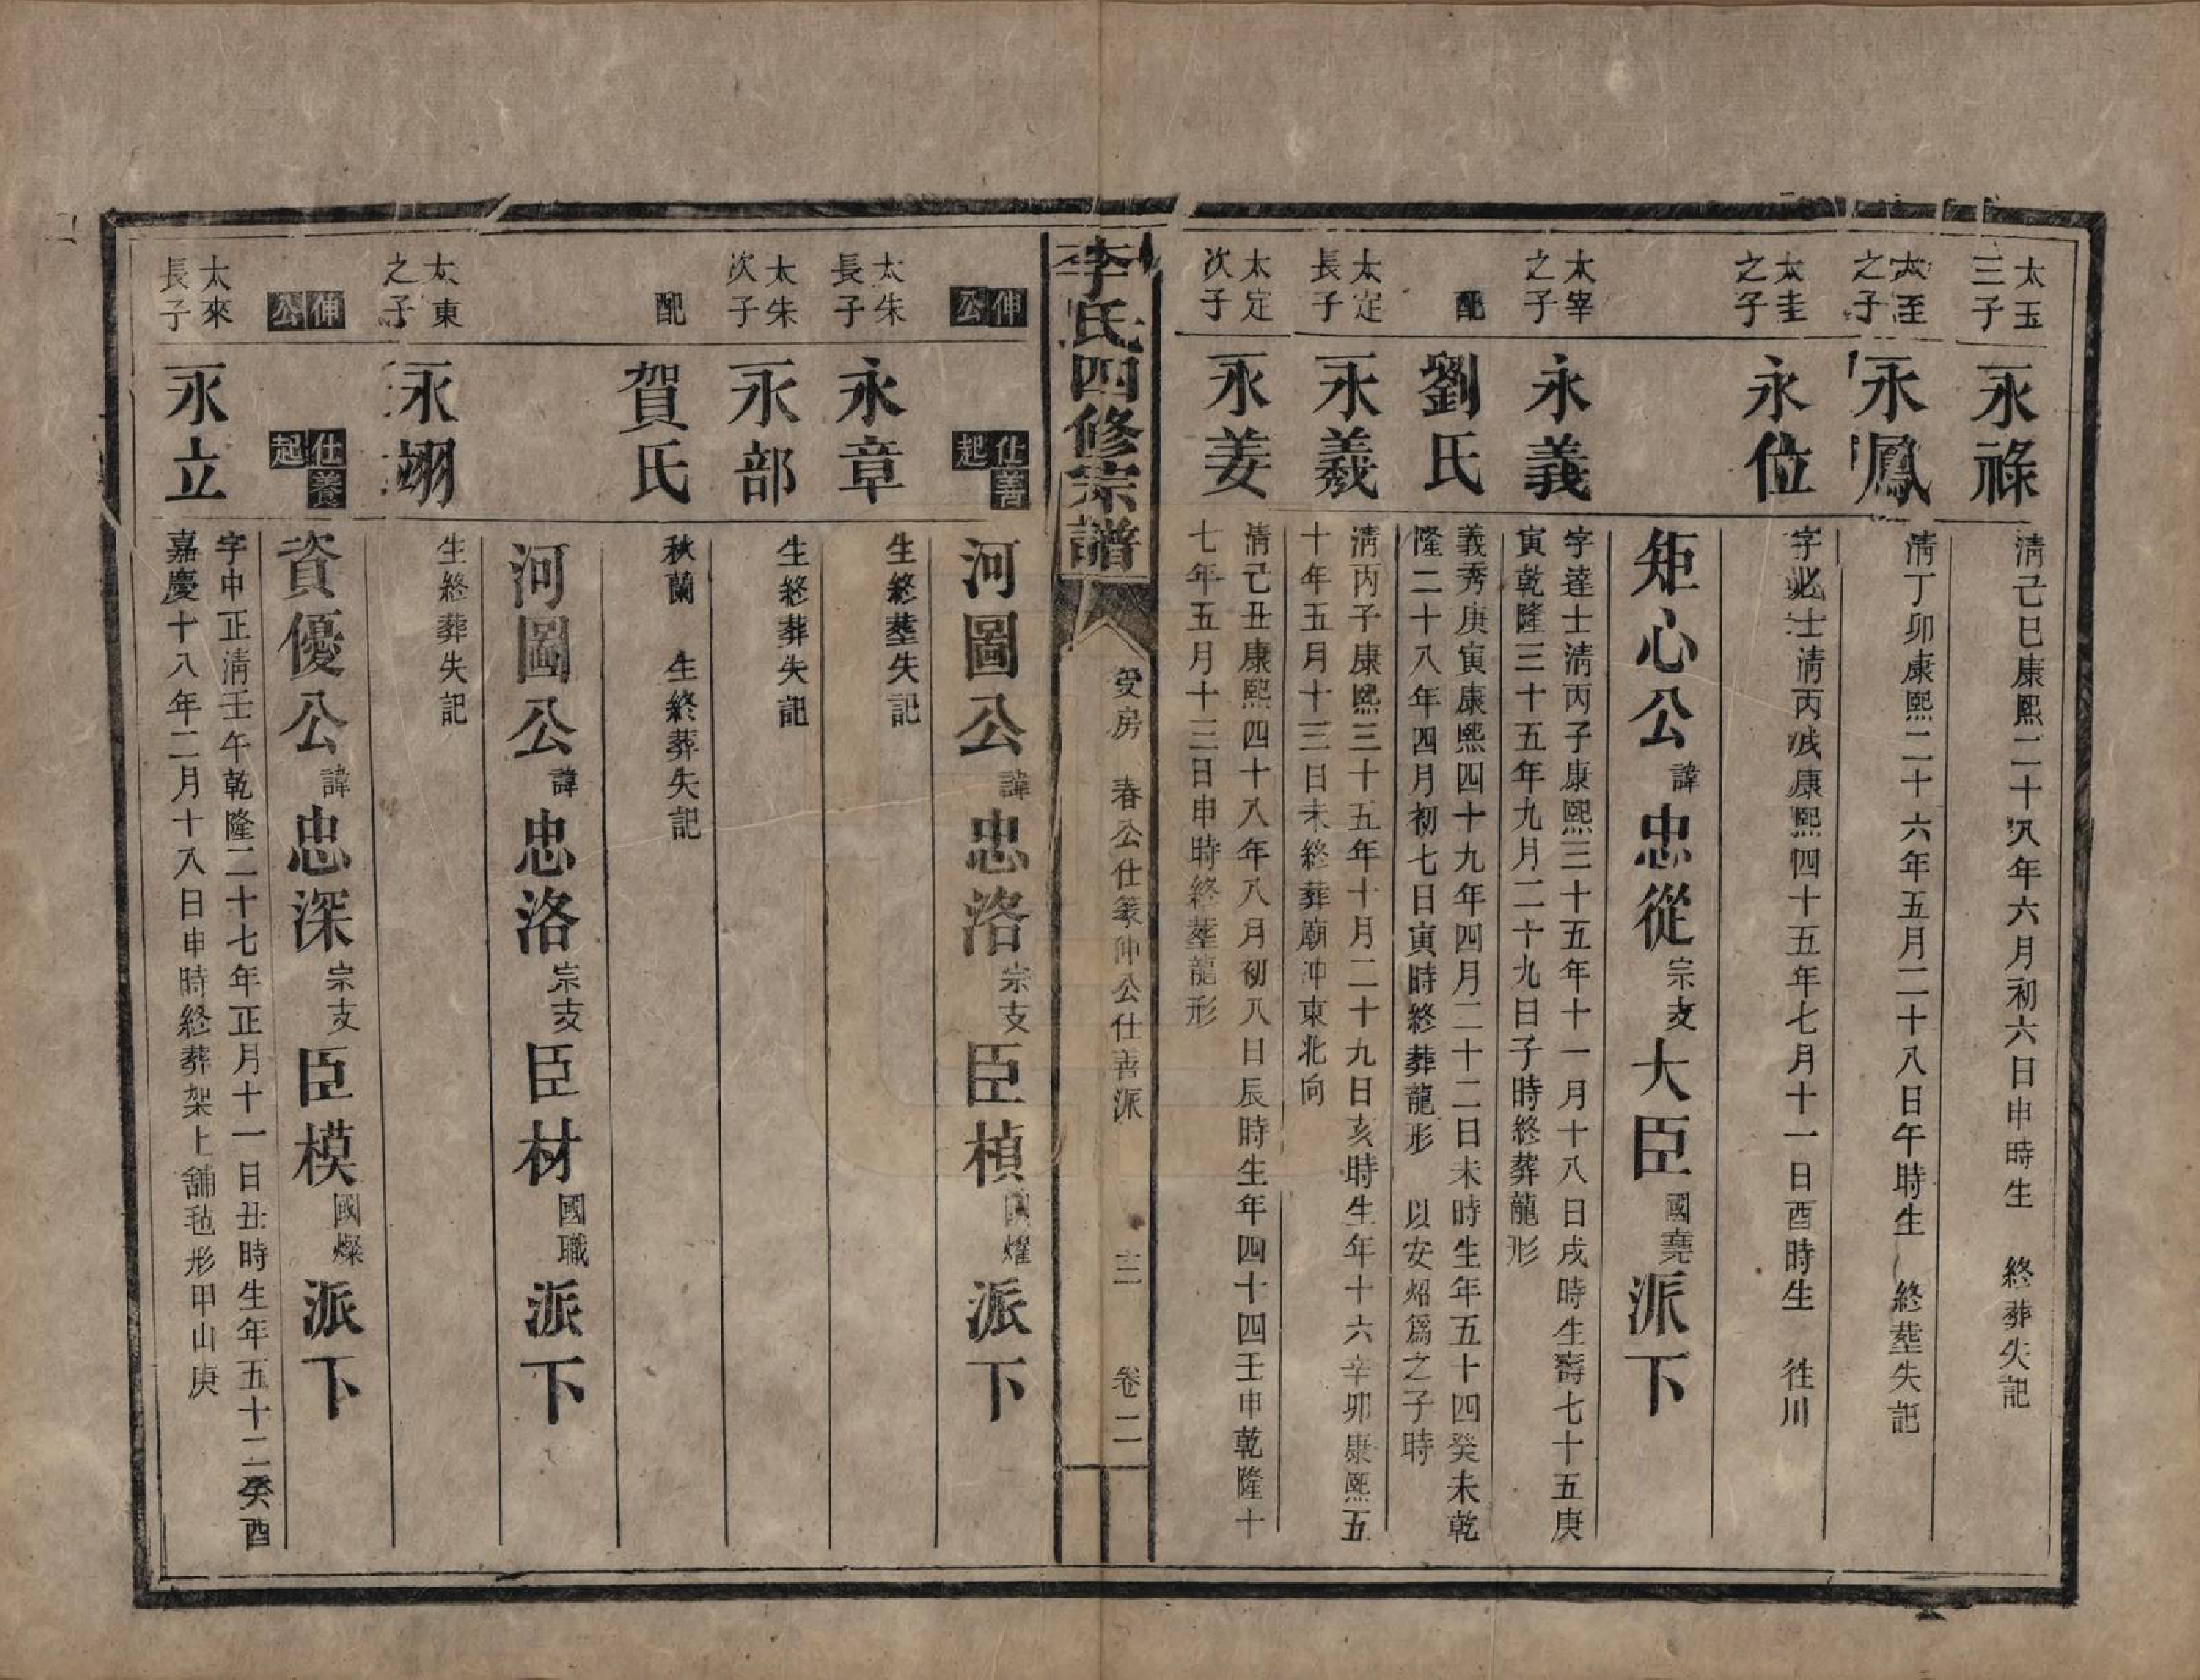 太玉三子
永祿
清己巳康熙二十八年六月初六日申時生　終葬失記
之子
永鳳
清丁卯康熙二十六年五月二十八日午時生　終塟失記
太圭之子
永位
字必士清丙戌康熙四十五年七月十一日酉時生　徃川
矩心公諱忠從宗支大臣國堯派下
太宰之子
永義
字達士清丙子康熙三十五年十一月十八日戌時生壽七十五庚
寅乾隆三十五年九月二十九日子時終葬龍形
配
劉氏
義秀庚寅康熙四十九年四月二十二日未時生年五十四癸未乾
隆二十八年四月初七日寅時終葬龍形　以安炤爲之子時
太定長子
永羲
清丙子康熙三十五年十月二十九日亥時生年十六辛卯康熙五
十年五月十三日未終葬廟冲東北向
太定次子
永姜
清己丑康熙四十八年八月初八日辰時生年四十四壬申乾隆十
七年五月十三日申時終塟龍形
李氏四修宗譜
受房　春公仕篆仲公仕善派　三　卷二
伸公
仕善起
河圖公諱忠洛宗支臣楨國燿派下
太朱長子
永章
生終塟失記
太朱次子
永部
生終葬失記
配
賀氏
秋蘭　生終葬失記
河圖公諱忠洛宗支臣材國職派下
太東之子
永翊
生終葬失記
伸公
仕養起
資優公諱忠深宗支臣模國燦派下
太來長子
永立
字申正清壬午乾隆二十七年正月十一日丑時生年五十二癸酉
嘉慶十八年二月十八日申時終葬架上舖毡形甲山庚